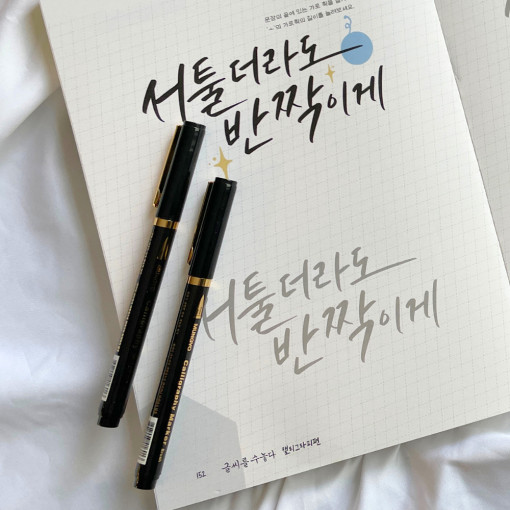 문장의 끝에 있는 가로 획을
'ㅗ'의 가로획의 길이를 늘려보세요.
서툴더라도
반짝이게
서툴더라도
반짝이게
MUNGYO Calligraphy Marker
152 글씨를 수놓다